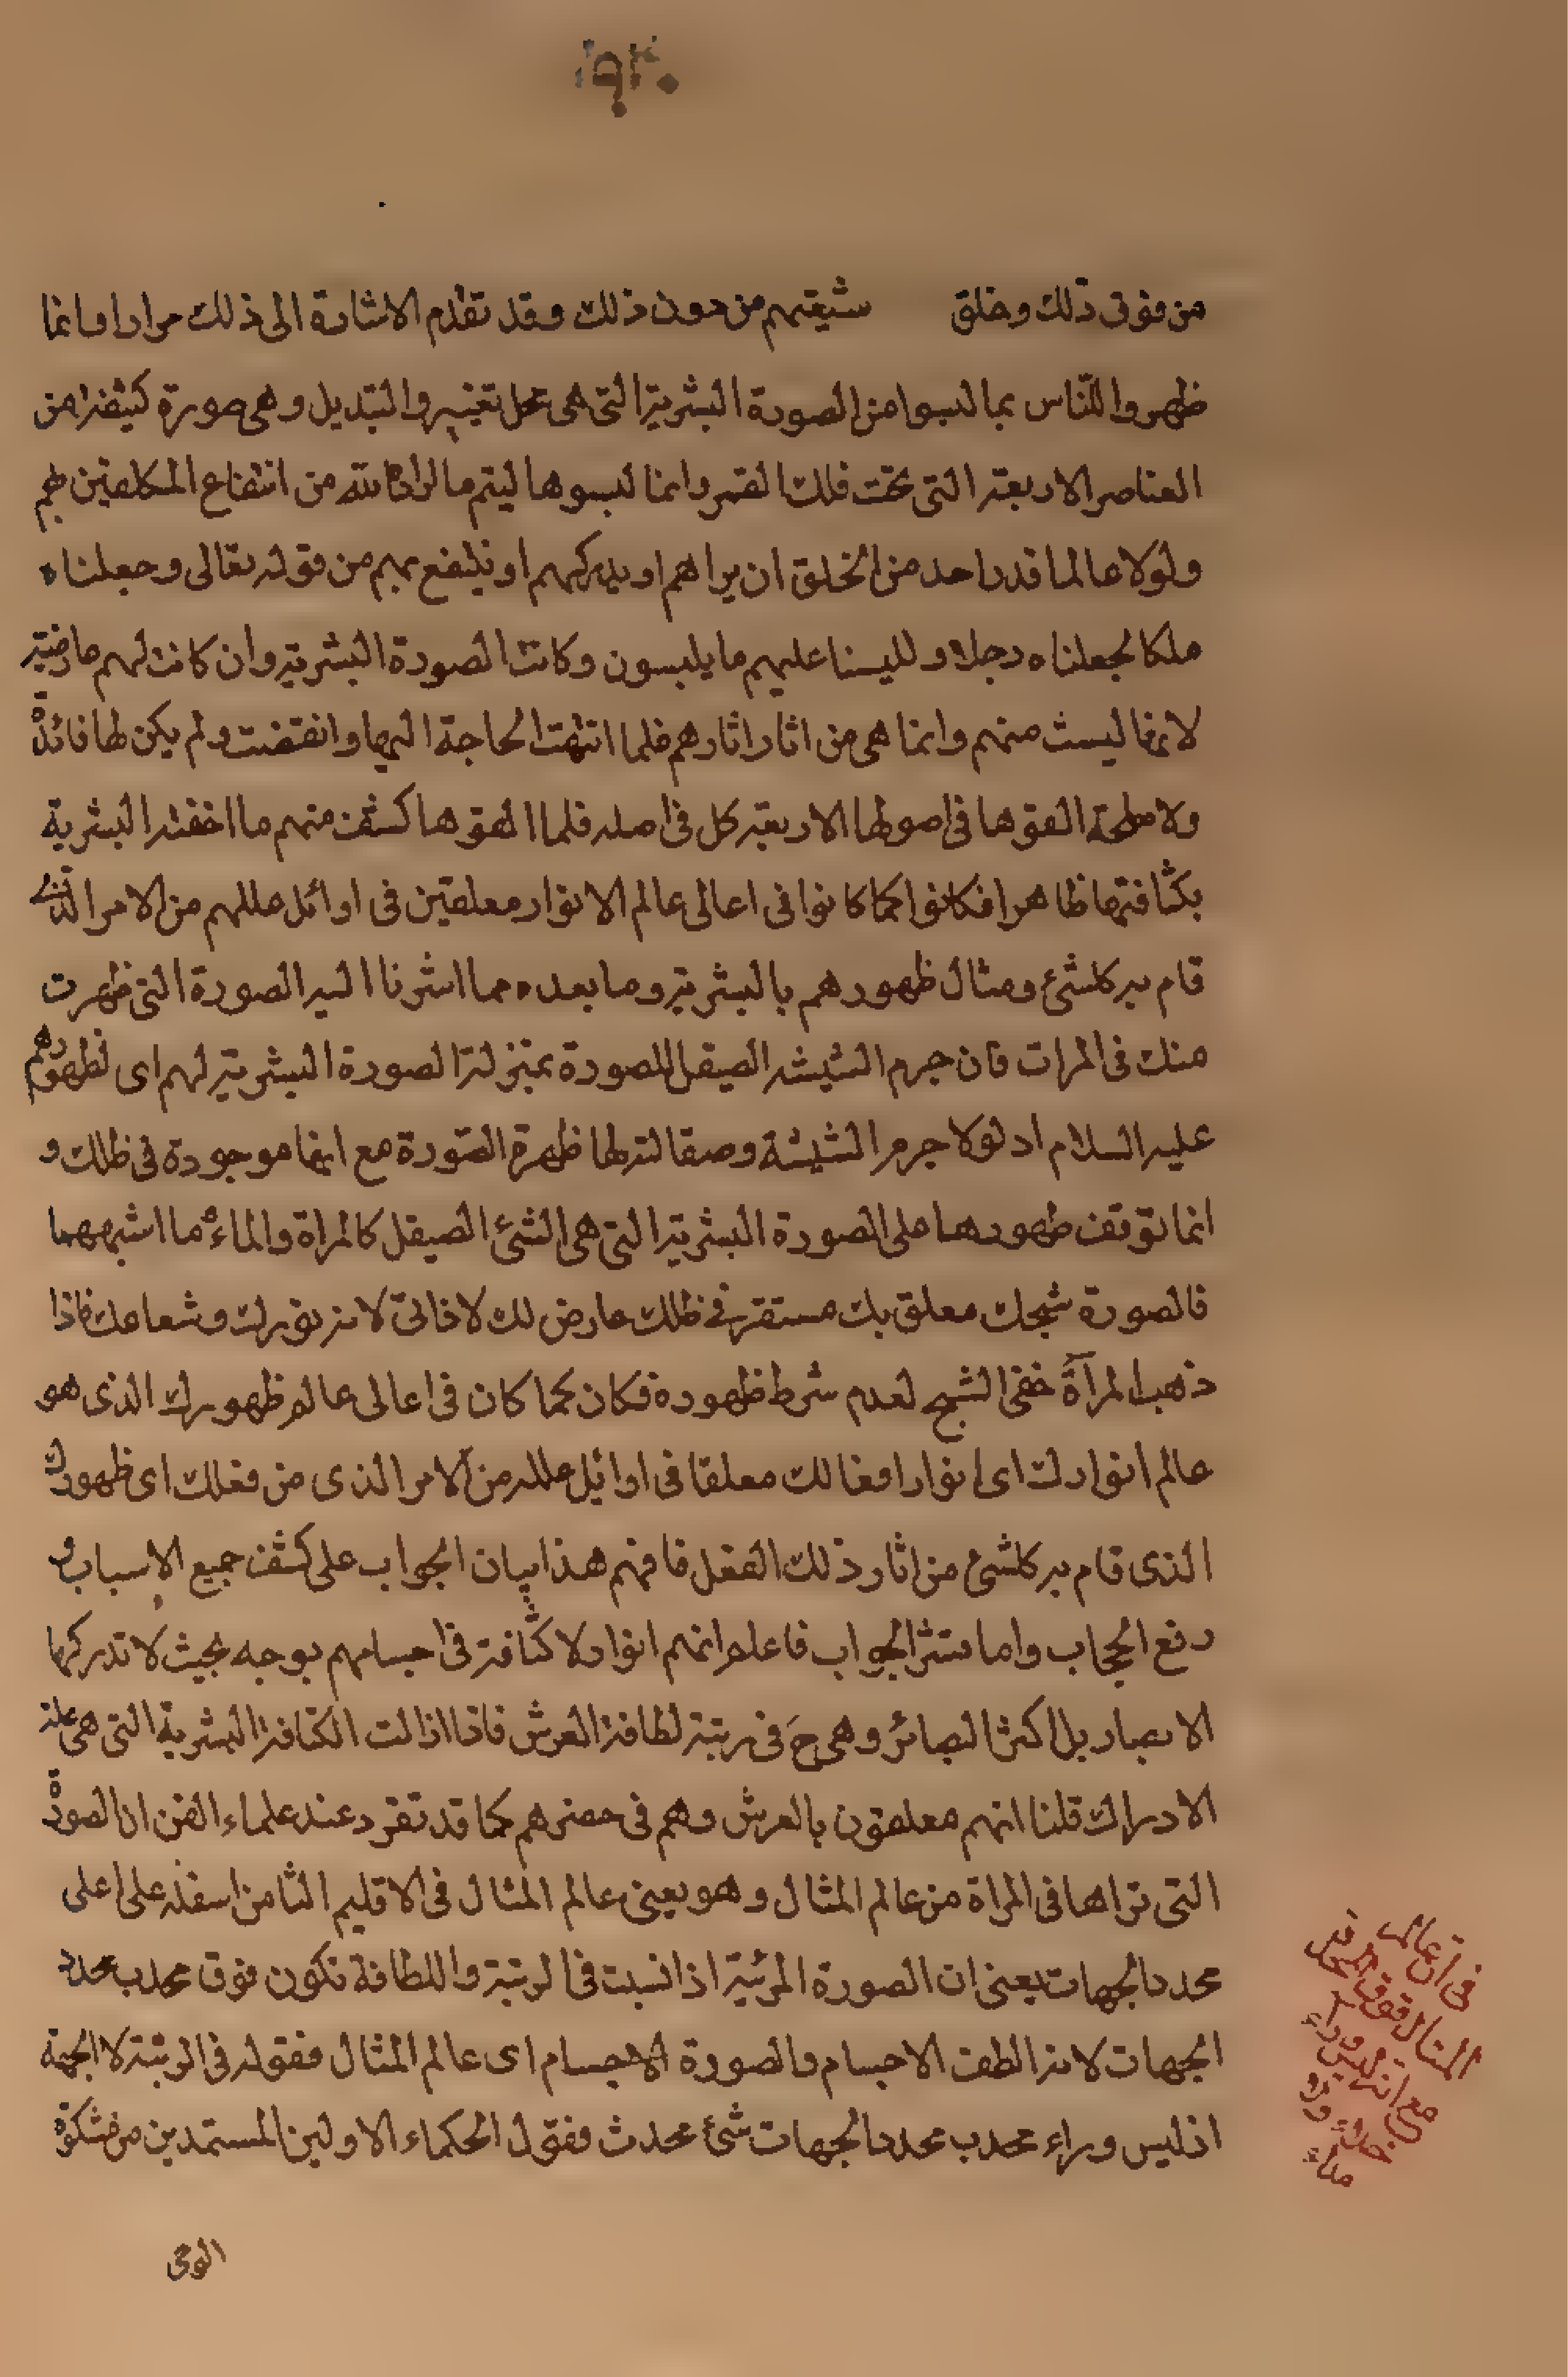 من فوق ذلك وخلق شيعتهم من دون ذلك وقد تقدم الاشارة الى ذلك مرارا وانما
ظهروا للنّاس بما لبسوا من الصورة البشرية التى هى محل تغيير والتبديل وهى صورة كثيفة من
العناصر الاربعة التى تحت فلك القمر وانما لبسوها ليتم ما اراد الله من انتفاع المكلفين بهم
ولولا ها لما قدر احد من الخلق ان يراهم او يدركهم او ينتفع بهم من قوله تعالى وجعلناه
ملكا لجعلناه رجلا وللبسنا عليهم ما يلبسون وكانت الصورة البشرية وان كانت لهم عارضية
لانها ليست منهم وانما هى من اثار اثارهم فلما انتهت الحاجة اليها وانقضت ولم يكن لها فائدة
ولا مصلحة القوها فى اصولها الاربعة كل فى اصله فلما القوها كشف منهم ما اخفته البشرية
بكثافتها ظاهرا فكانوا كما كانوا فى اعالى عالم الانوار معلقين فى اوائل عللهم من الامر الذى
قام به كلشئ ومثال ظهورهم بالبشرية وما بعده مما اشرنا اليه الصورة التى ظهرت
منك فى المرات فان جرم الشيشه الصيقل للصورة بمنزلة الصورة البشرية لهم اى لظهورهم
عليه السلام اد لولا جرم الشيشة وصقالته لما ظهرة الصّورة مع انها موجودة فى ظلك و
انما توقف ظهورها على الصورة البشرية التى هى الشئ الصيقل كالمراة والماء وما اشبههما
فالصورة شبحك معلق بك مستقر فى ظلك عارض لك لا ذاتى لانه نورك وشعاعك فاذا
ذهب المرآة خفى الشبح لعدم شرط ظهوره فكان كما كان فى اعالى عالم ظهورك الذى هو
عالم انوارك اى انوار افعالك معلقا فى اوائل علله من الامر الذى من فعلك اى ظهورك
الذى قام به كلشئ من اثار ذلك الفعل فافهم هذا بيان الجواب على كشف جميع الاسباب و
رفع الحجاب واما ستر الجواب فاعلم انهم انوار لا كثافة فى اجسامهم بوجه بحيث لا تدركها
الابصار بل اكثر البصائر وهى ح فى رتبة لطافة العرش فاذا ازالت الكثافة البشرية التى هى علة
الادراك قلنا انهم معلقون بالعرش وهم فى حضرهم كما قد تقرر عند علماء الفن ان الصورة
التى تراها فى المراة من عالم المثال وهو يعنى عالم المثال فى الاقليم الثامن اسفله على اعلى
محدد الجهات يعنى ان الصورة المرئية اذا نسبت فى الرتبة واللطافة تكون فوق محدب محدد
الجهات لانه الطف الاجسام والصورة الاجسام اى عالم المثال فقوله فى الرتبة لا الجهة
اذ ليس وراء محدب محدد الجهات شئ محدث فقول الحكماء الاولين المستمدين من مشكوة
الوحى
فى ان عالم
المثال فوق المحدد
مع انه ليس وراءه
خلاء ولا
ملاء